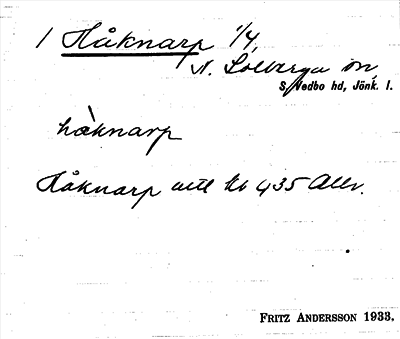 1 Håknarp 1/4
N. Solberga sn,
S. Vedbo hd, Jönk. l.
hàknarp
Håknarp mtl kb 435 Allv.
FRITZ ANDERSSON 1933.